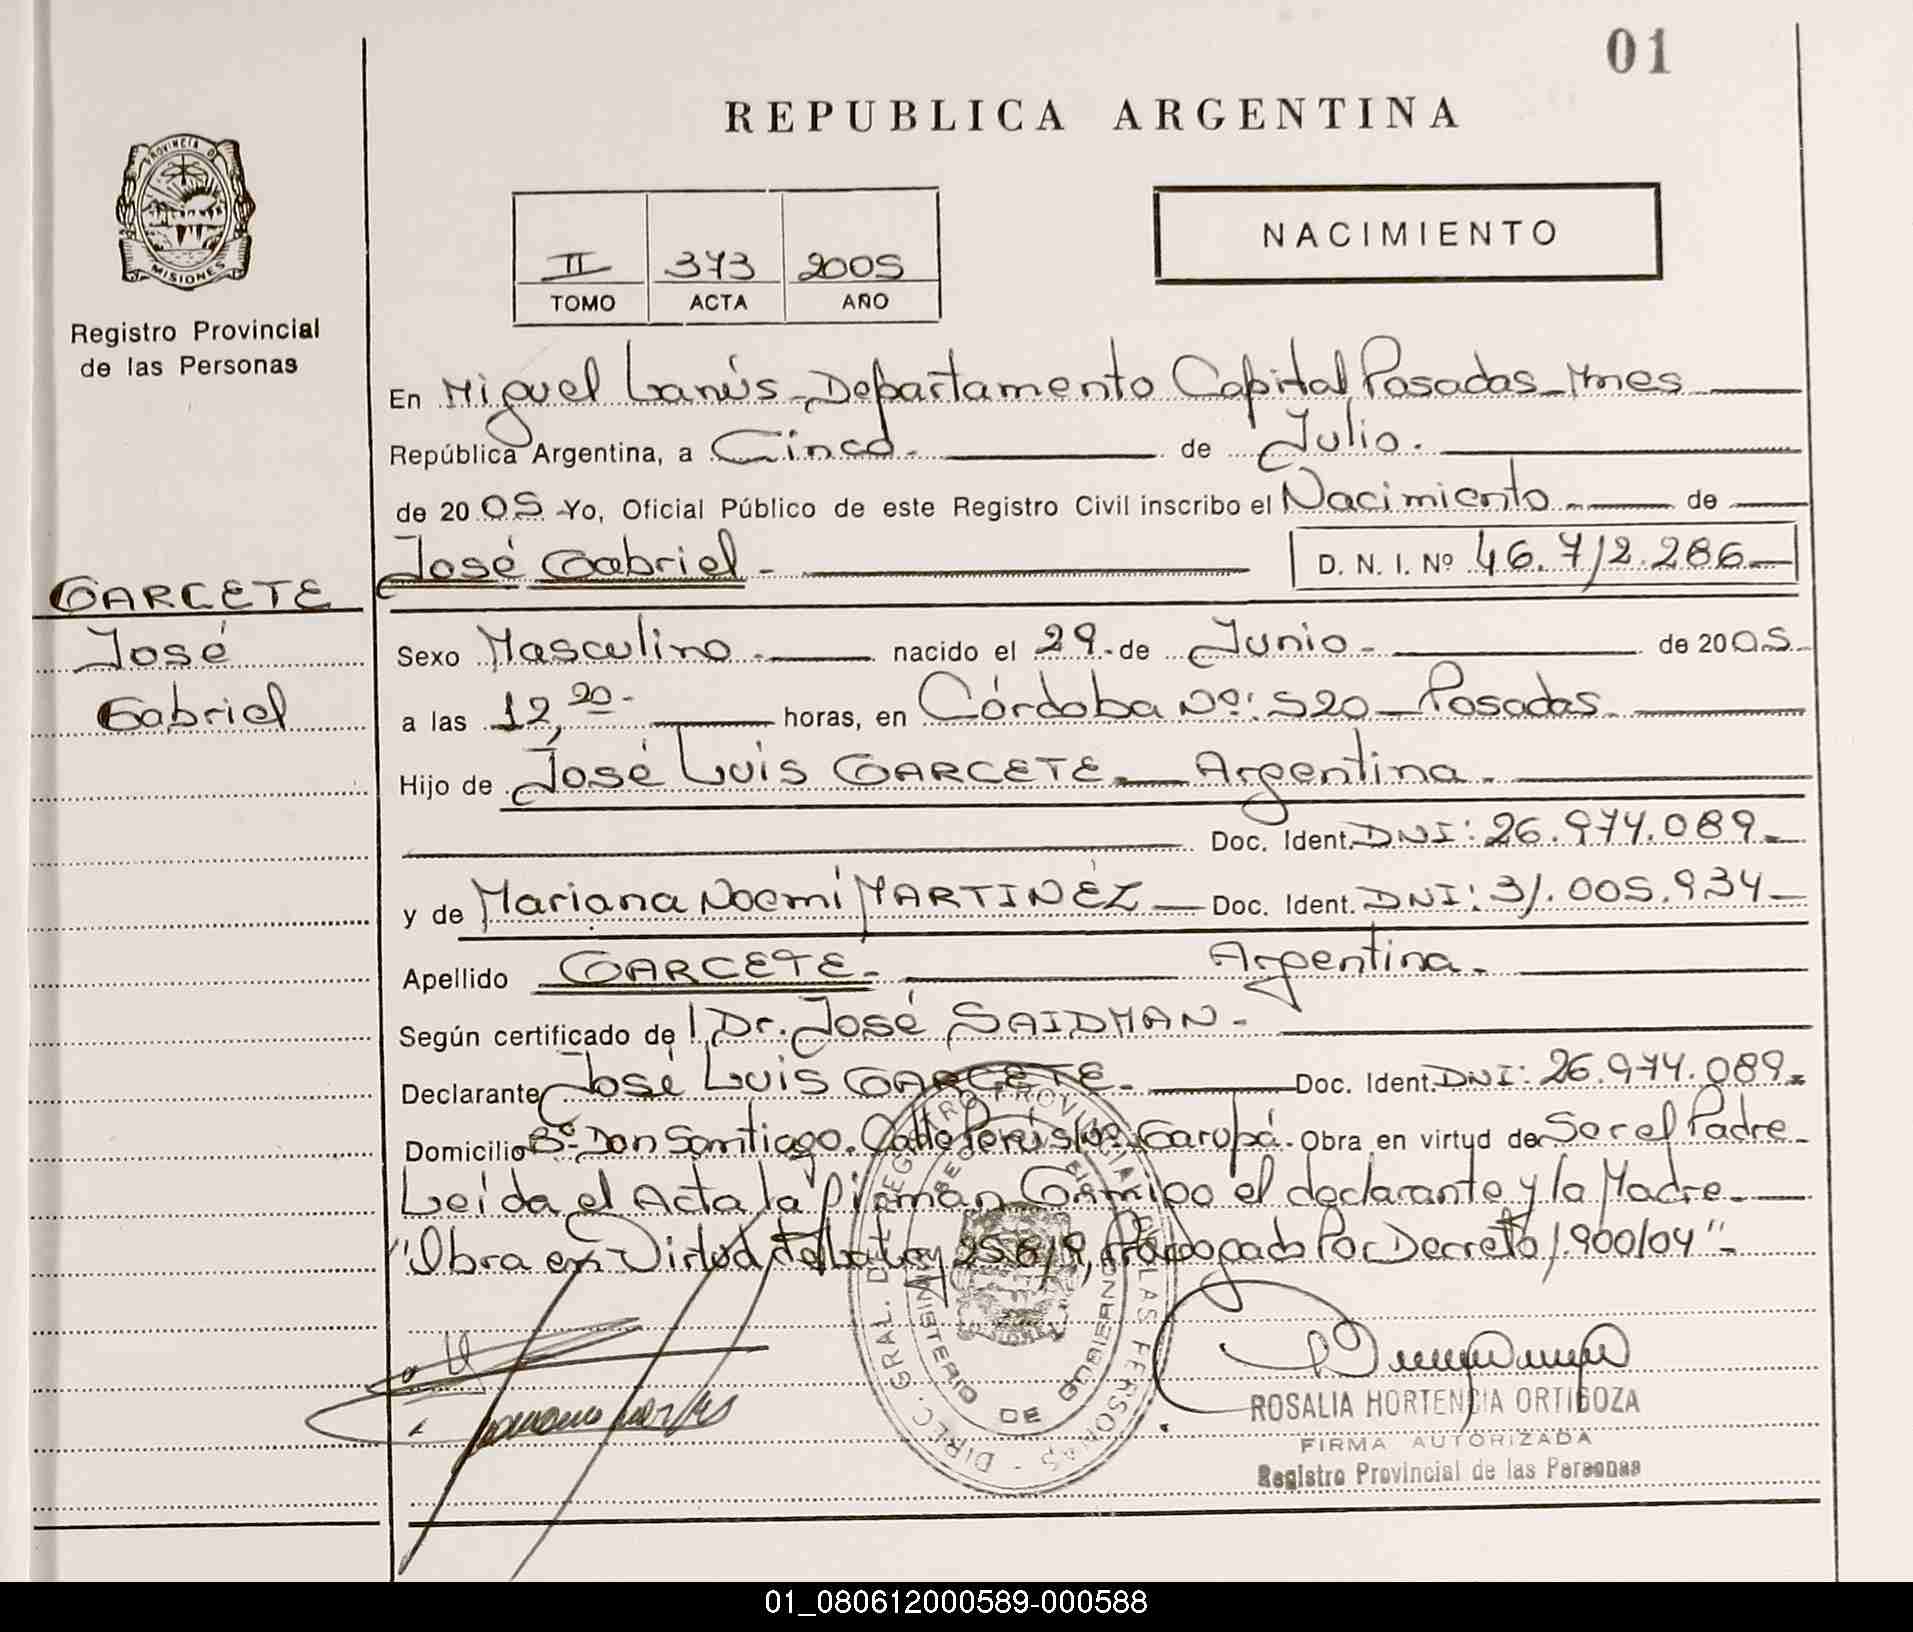 01
REPUBLICA ARGENTINA
PROVINCIA D
MISIONES
Registro Provincial
de las Personas
II 373 2005
TOMO ACTA AÑO
NACIMIENTO
En Miguel Lanús - Departamento Capital Posadas - Mnes
República Argentina, a Cinco. de Julio.
de 2005 - Yo, Oficial Público de este Registro Civil inscribo el Nacimiento. de
José Gabriel - D. N. I. Nº 46.712.286
GARCETE
José
Gabriel
Sexo Masculino. nacido el 29. de Junio. de 2005.
a las 12,20- horas, en Córdoba Nº: 520 - Posadas.
Hijo de José Luis GARCETE Argentina.
Doc. Ident. DNI: 26.974.089.
y de Mariana Noemí MARTINEZ Doc. Ident. DNI: 31.005.934
Apellido GARCETE. Argentina.
Según certificado de Dr. José SAIDMAN-
Declarante José Luis GARCETE. Doc. Ident. DNI: 26.974.089.
Domicilio Bº Don Santiago. Calle Garupá. Obra en virtud de Ser el Padre
Leída el Acta la firman Conmigo el declarante y la Madre.
"Obra en Virtud de la Ley 25.819, Prorrogado Por Decreto 1.900/04"-
DIREC. GRAL. DEL REGISTRO PROVINCIAL DE LAS PERSONAS
MINISTERIO DE GOBIERNO
MISIONES
ROSALIA HORTENCIA ORTIGOZA
FIRMA AUTORIZADA
Registro Provincial de las Personas
01_080612000589-000588